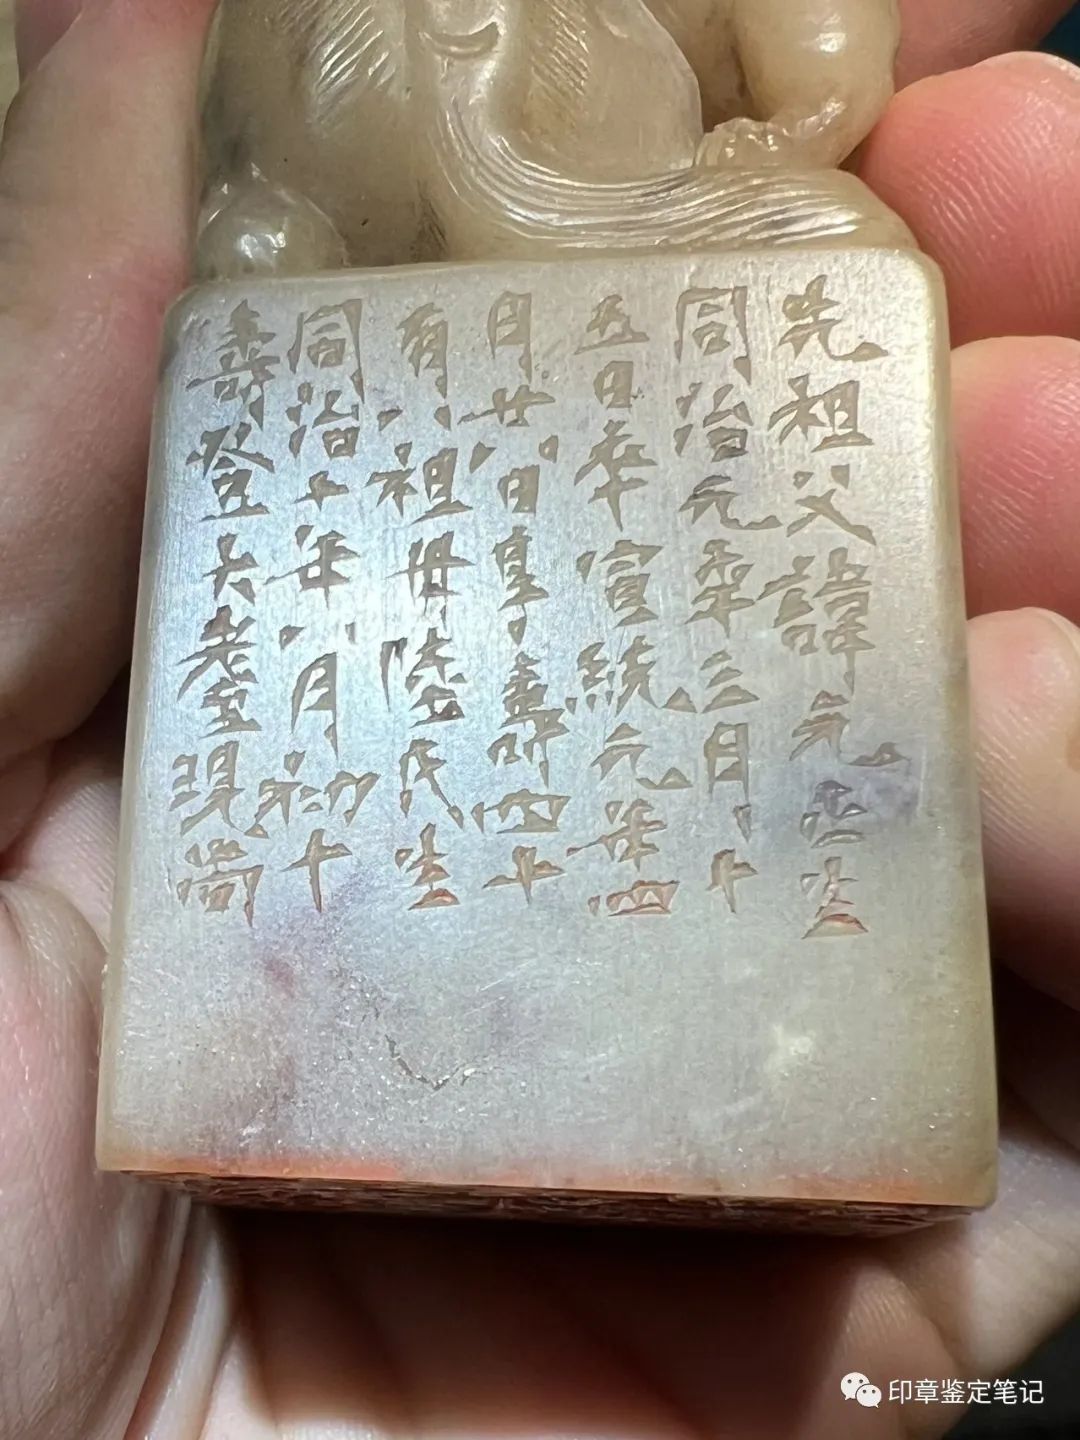 先祖父諱元㐫生
同治元年三月十
五日卒宣統元年四
月廿八日享壽四十
有八祖母陸氏生
同治十年八月初十
壽登大耄現尚
印章鉴定笔记